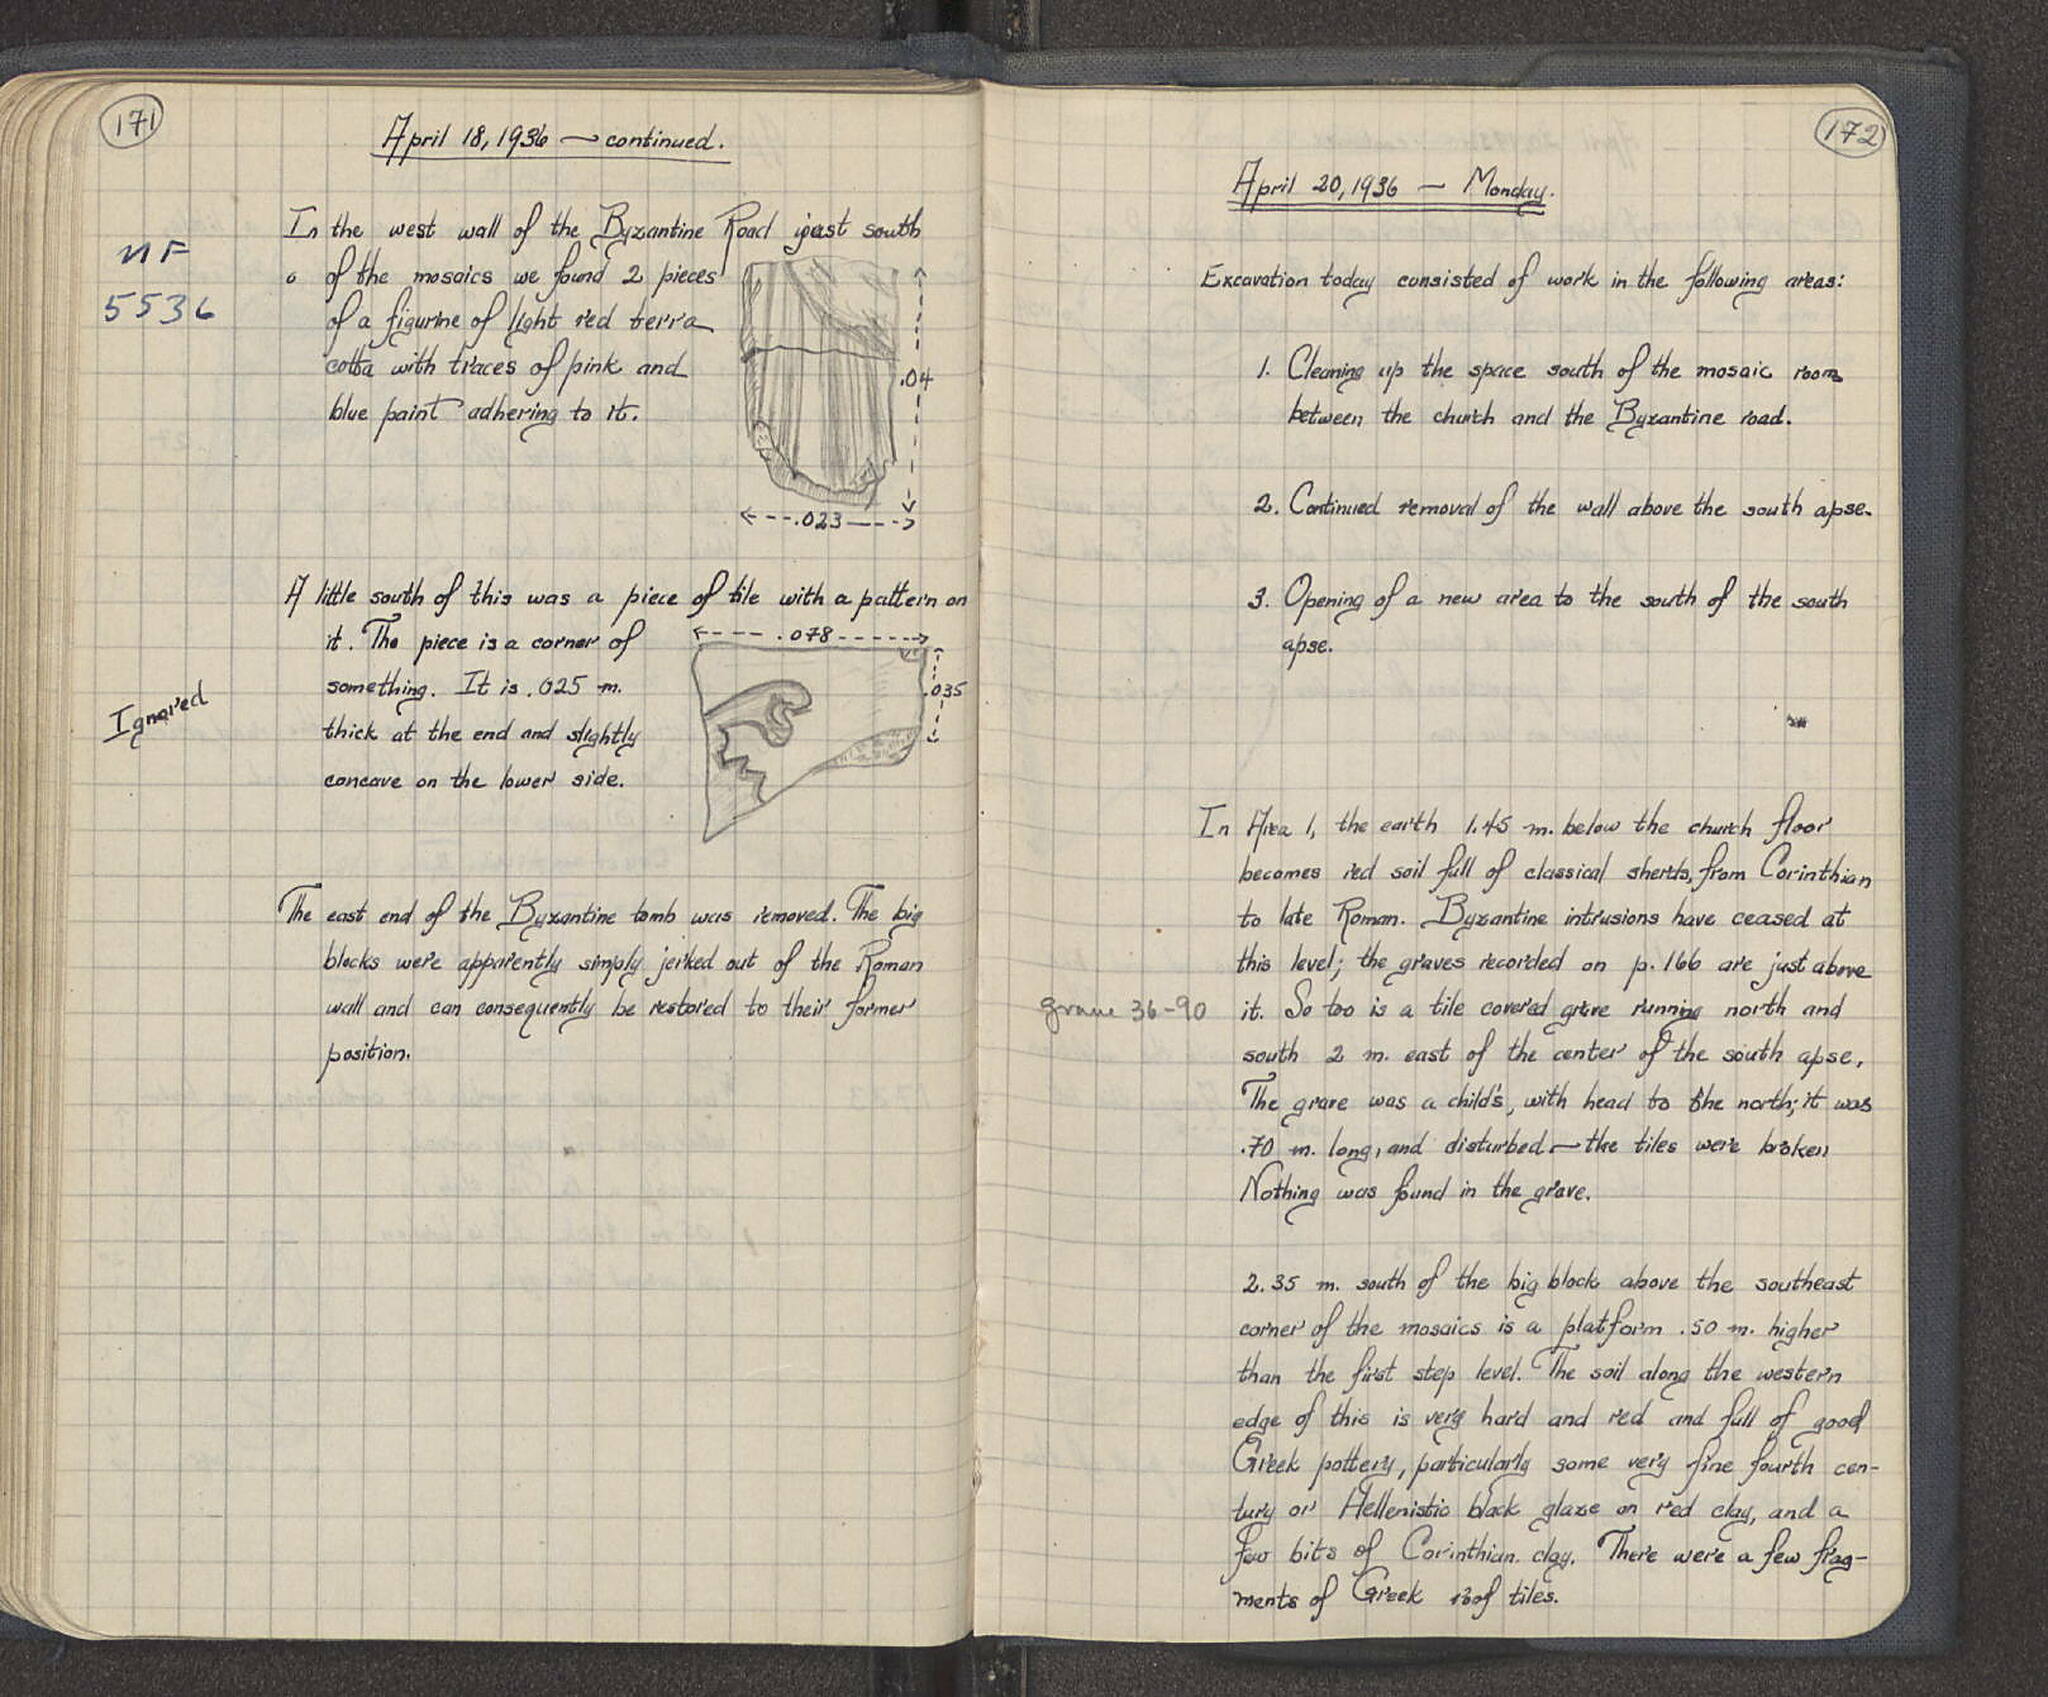 171
April 18, 1936 — continued.
In the west wall of the Byzantine Road just south
MF
5536
of the mosaics we found 2 pieces
of a figurine of light red terra
cotta with traces of pink and
blue paint adhering to it.
.04
.023
A little south of this was a piece of tile with a pattern on
it. The piece is a corner of
something. It is .025 m.
thick at the end and slightly
concave on the lower side.
.078
.035
Ignored
The east end of the Byzantine tomb was removed. The big
blocks were apparently simply jerked out of the Roman
wall and can consequently be restored to their former
position.
172
April 20, 1936 — Monday.
Excavation today consisted of work in the following areas:
1. Cleaning up the space south of the mosaic room
between the church and the Byzantine road.
2. Continued removal of the wall above the south apse.
3. Opening of a new area to the south of the south
apse.
In Area 1, the earth 1.45 m. below the church floor
becomes red soil full of classical sherds, from Corinthian
to late Roman. Byzantine intrusions have ceased at
this level; the graves recorded on p. 166 are just above
grave 36-90
it. So too is a tile covered grave running north and
south 2 m. east of the center of the south apse.
The grave was a child's, with head to the north; it was
.70 m. long, and disturbed — the tiles were broken
Nothing was found in the grave.
2.35 m. south of the big block above the southeast
corner of the mosaics is a platform .50 m. higher
than the first step level. The soil along the western
edge of this is very hard and red and full of good
Greek pottery, particularly some very fine fourth cen-
tury or Hellenistic black glaze on red clay, and a
few bits of Corinthian clay. There were a few frag-
ments of Greek roof tiles.